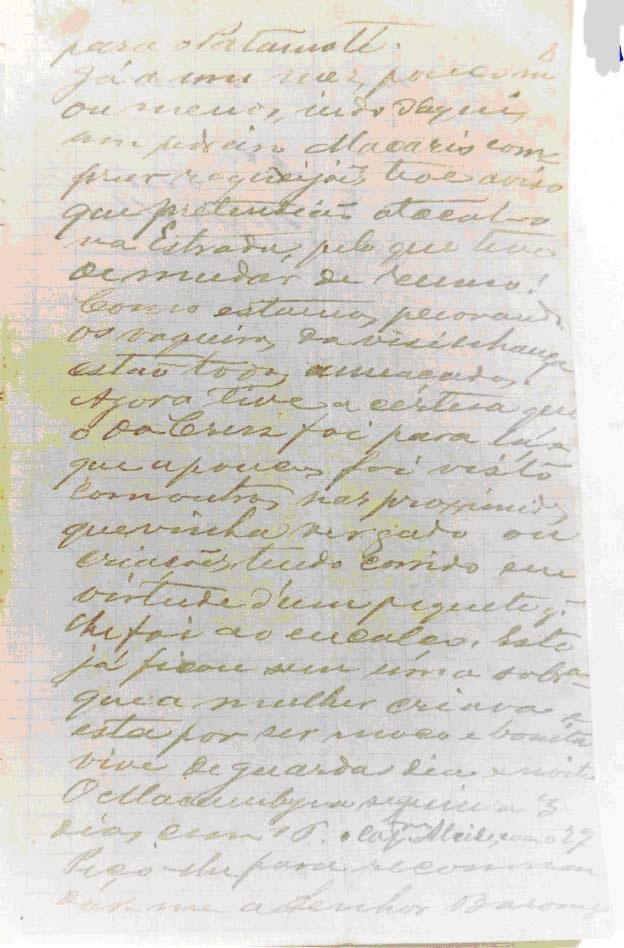 para o Patamoté. 8
Já a um mez, pouco m
ou menos, indo daqui,
um Macario com-
prar requeijões tive aviso
que pretendião atacal-o
na Estrada, pelo que teve
de mudar de rumo!
Como estamos,
os vaqueiros da visinhança
estão todos ameaçados.
Agora tive a certesa que
o da Cruz foi para lá, e
que a poucos foi visto
com outros nas proximid
que vinha ou
criações, tendo corrido em
virtude d'um piquete q.
lhe foi ao encalço. Este
já ficou sem uma sobr.ª
que a mulher criava e
esta por ser moça e bonita
vive de guarda dia e noite
O Macambyra seguiu a 3
dias com o com o 27
Peço-lhe para recommen
dar-me a Senhor